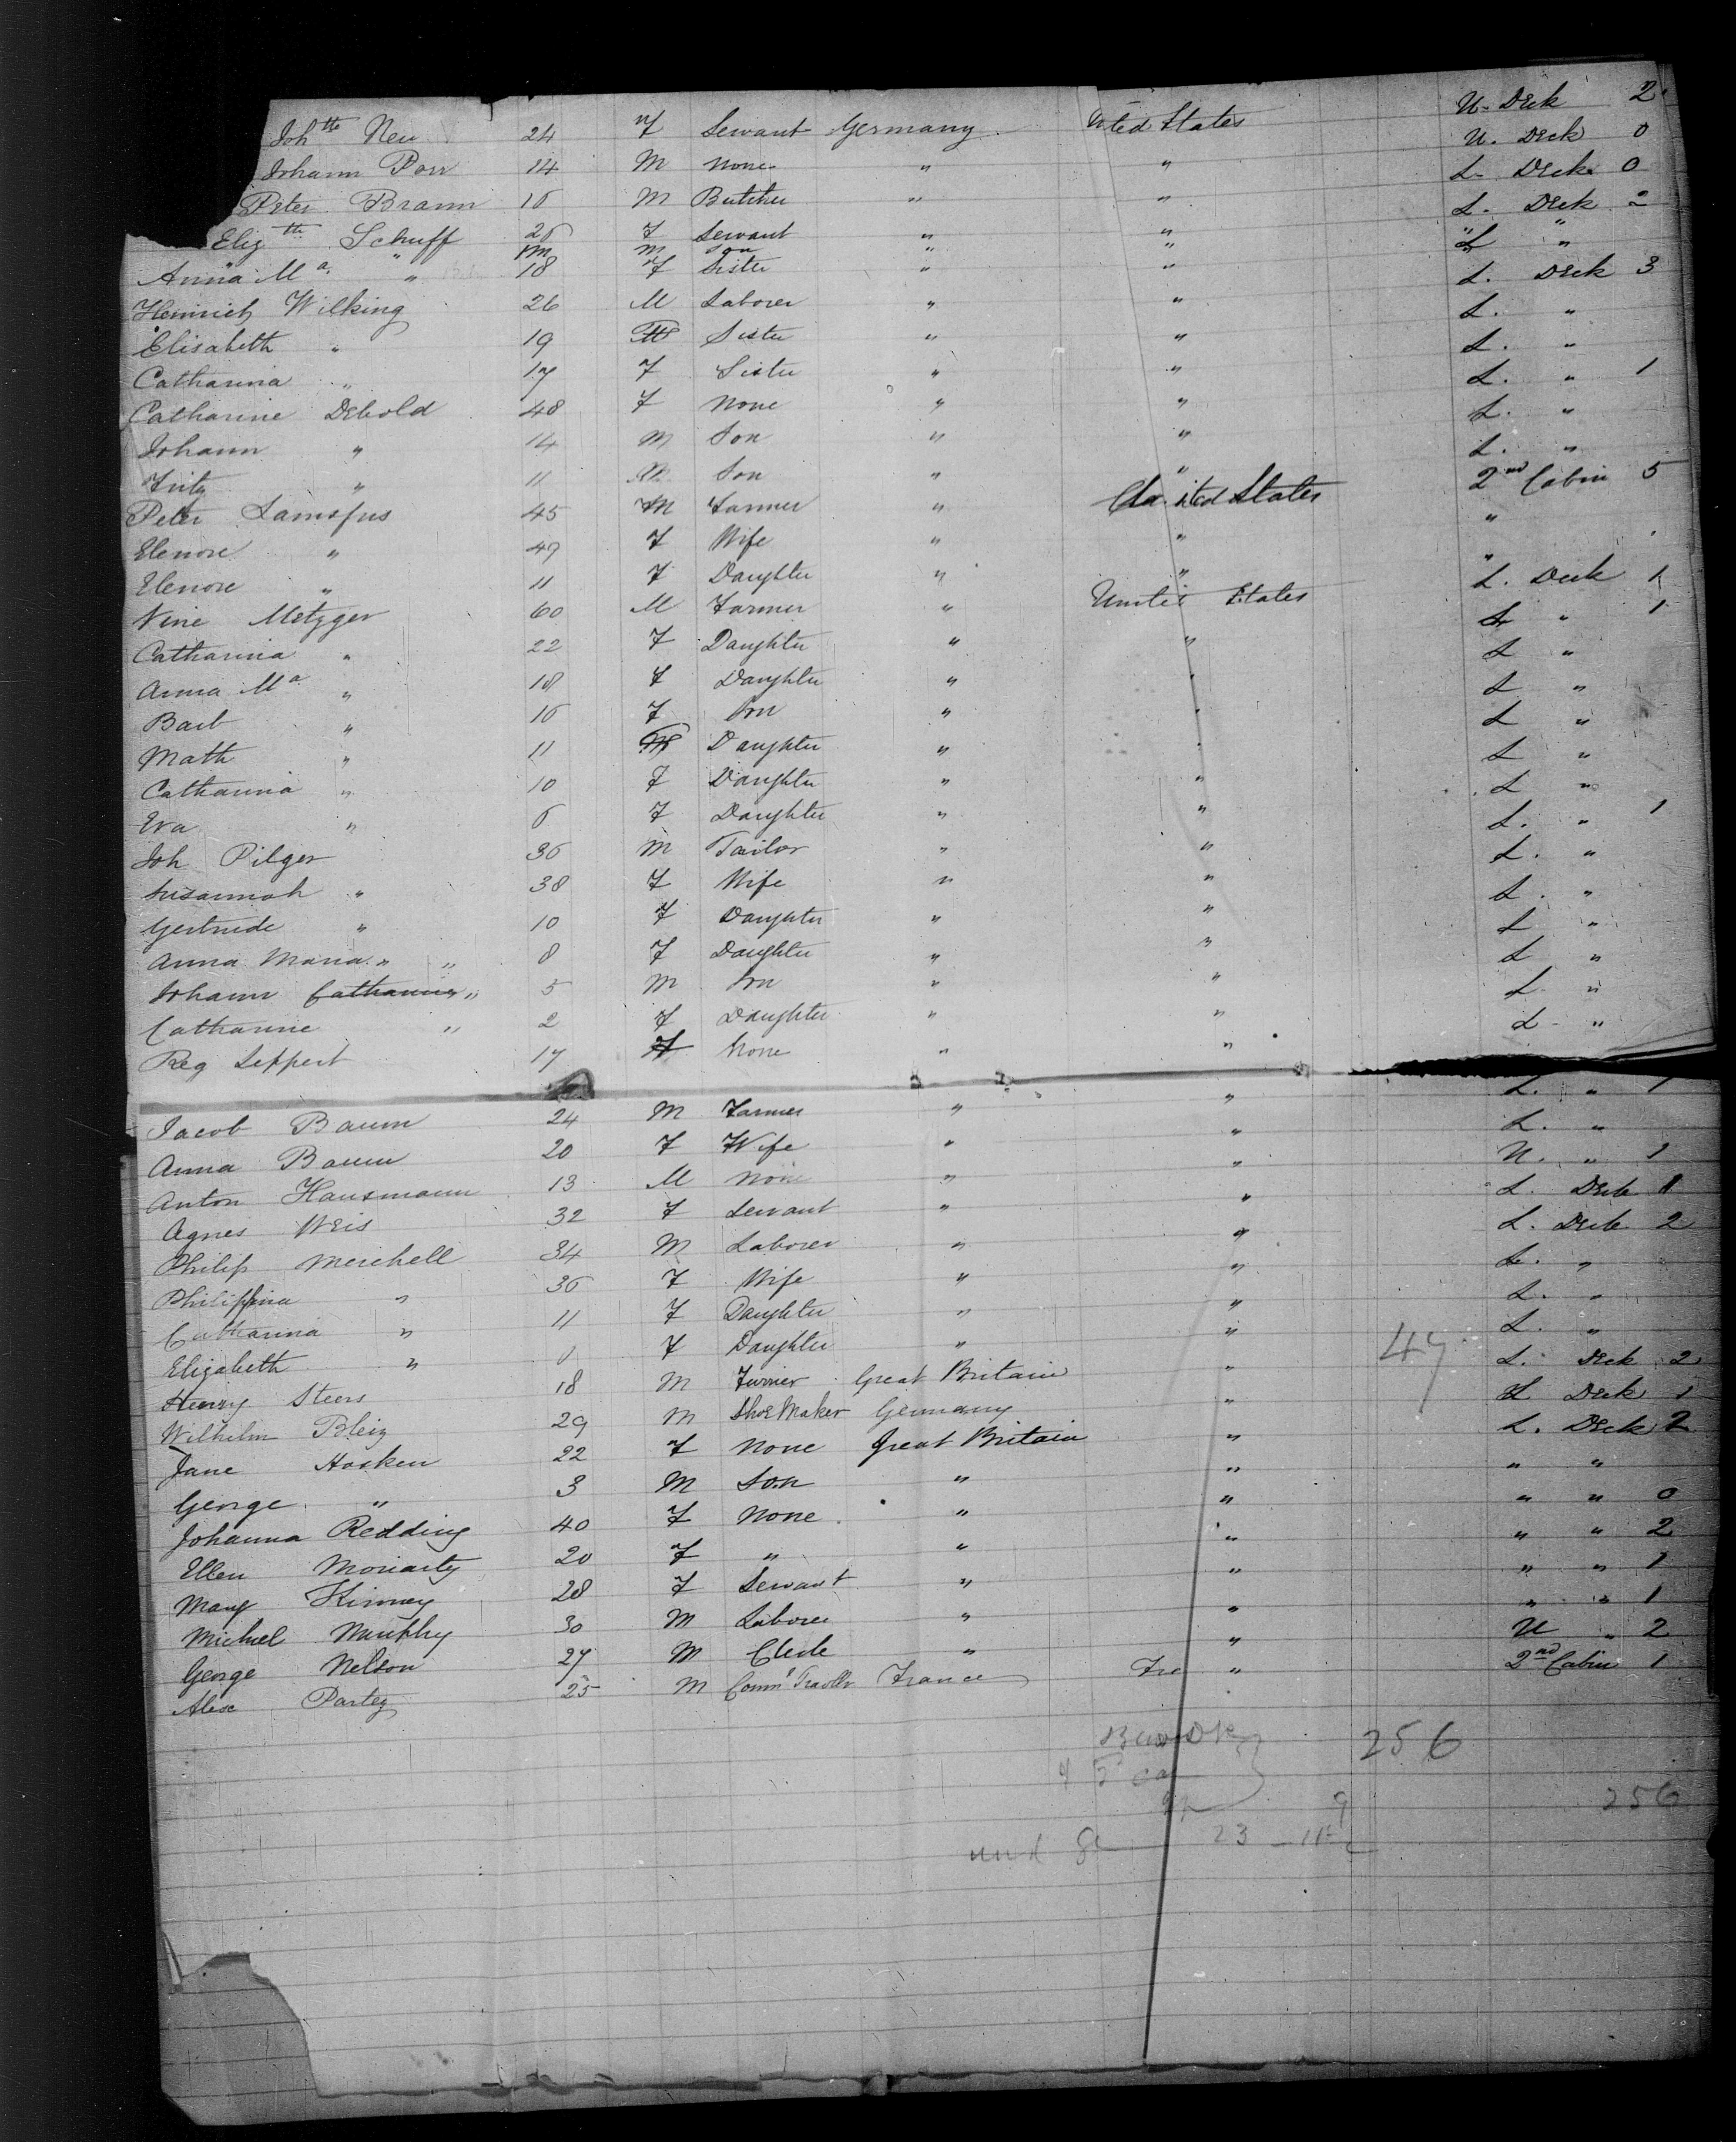 Joh tte Neu 24 F Servant Germany United States U. Deck 2
Johann Porr 14 M None " " U. Deck 0
Peter Braun 16 M Butcher " " L. Deck 0
Eliz th Schuff 26 F Servant " " L. Deck 2
" " M Son " " " "
Anna Ma " 18 F Sister " " L "
Heinrich Wilking 26 M Laborer " " L. Deck 3
Elisabeth " 19 Sister " " L. "
Catharina " 17 F Sister " " L. "
Catharine Debold 48 F None " " L. " 1
Johann " 14 M Son " " L. "
Fritz " 11 M Son " " L. "
Peter Lamsfus 45 M Farmer " United States 2nd Cabin 5
Elenore " 49 F Wife " " "
Elenore " 11 F Daughter " " "
Nine Metzger 60 M Farmer " United States L. Deck 1
Catharina " 22 F Daughter " " L " 1
Anna Ma " 18 F Daughter " " L "
Barb " 16 F Son " " L "
Math " 11 M Daughter " " L "
Catharina " 10 F Daughter " " L "
Eva " 6 F Daughter " " L "
Joh Pilger 36 M Tailor " " L. " 1
Susannah " 38 F Wife " " L. "
Gertrude " 10 F Daughter " " L. "
Anna Maria " " 8 F Daughter " " L "
Johann Catharine " 5 M Son " " L "
Catharine " 2 F Daughter " " L "
Reg Leppert 17 F None " " L "
Jacob Baum 24 M Farmer " " L. " 1
Anna Baum 20 F Wife " " L. "
Anton Hausmann 13 M None " " U. " 1
Agnes Weis 32 F Servant " " L. Deck 1
Philip Merchell 34 M Laborer " " L. Deck 2
Philippina " 36 F Wife " " L. "
Catharina " 11 F Daughter " " L. "
Elizabeth " F Daughter " " L. "
Henry Steers 18 M Furrier Great Britain " 49 L. Deck 2
Wilhelm Bleiz 29 M Shoe Maker Germany " L Deck 1
Jane Hosken 22 F None Great Britain " L. Deck 2
George " 3 M Son " " " "
Johanna Redding 40 F None " " " " 0
Ellen Moriarty 20 F " " " " " 2
Mary Kinney 28 F Servant " " " " 1
Michael Murphy 30 M Laborer " " " " 1
George Nelson 27 M Clerk " " U " 2
Alex Partez 25 M Comml Travller France " 2nd Cabin 1
256
9 256
23